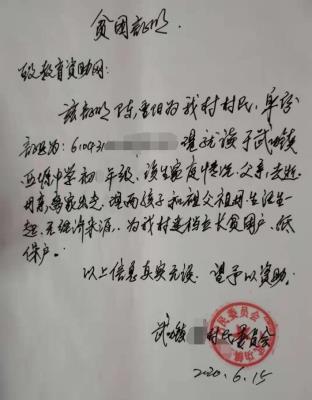 贫困证明
致教育资助网：
兹证明陈 怡为我村村民，身份
证号为：610431 现就读于武功镇
中学初一年级，该生家庭情况，父亲去世，
母亲离家出走，现两孩子和祖父祖母生活在一
起，无经济来源，为我村建档立卡贫困户、低
保户。
以上信息真实无误，望予以资助。
武功镇 村民委员会
2020.6.15
村民委员会